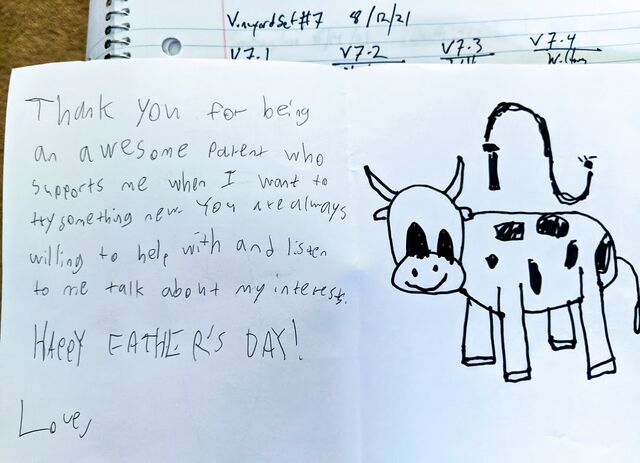 Vineyard Set #7 8/12/21
V7.1 V7.2 V7.3 V7.4
Thank you for being
an awesome Parent who
supports me when I want to
try something new. You are always
willing to help with and listen
to me talk about my interests.
HAPPY FATHER'S DAY!
Love,